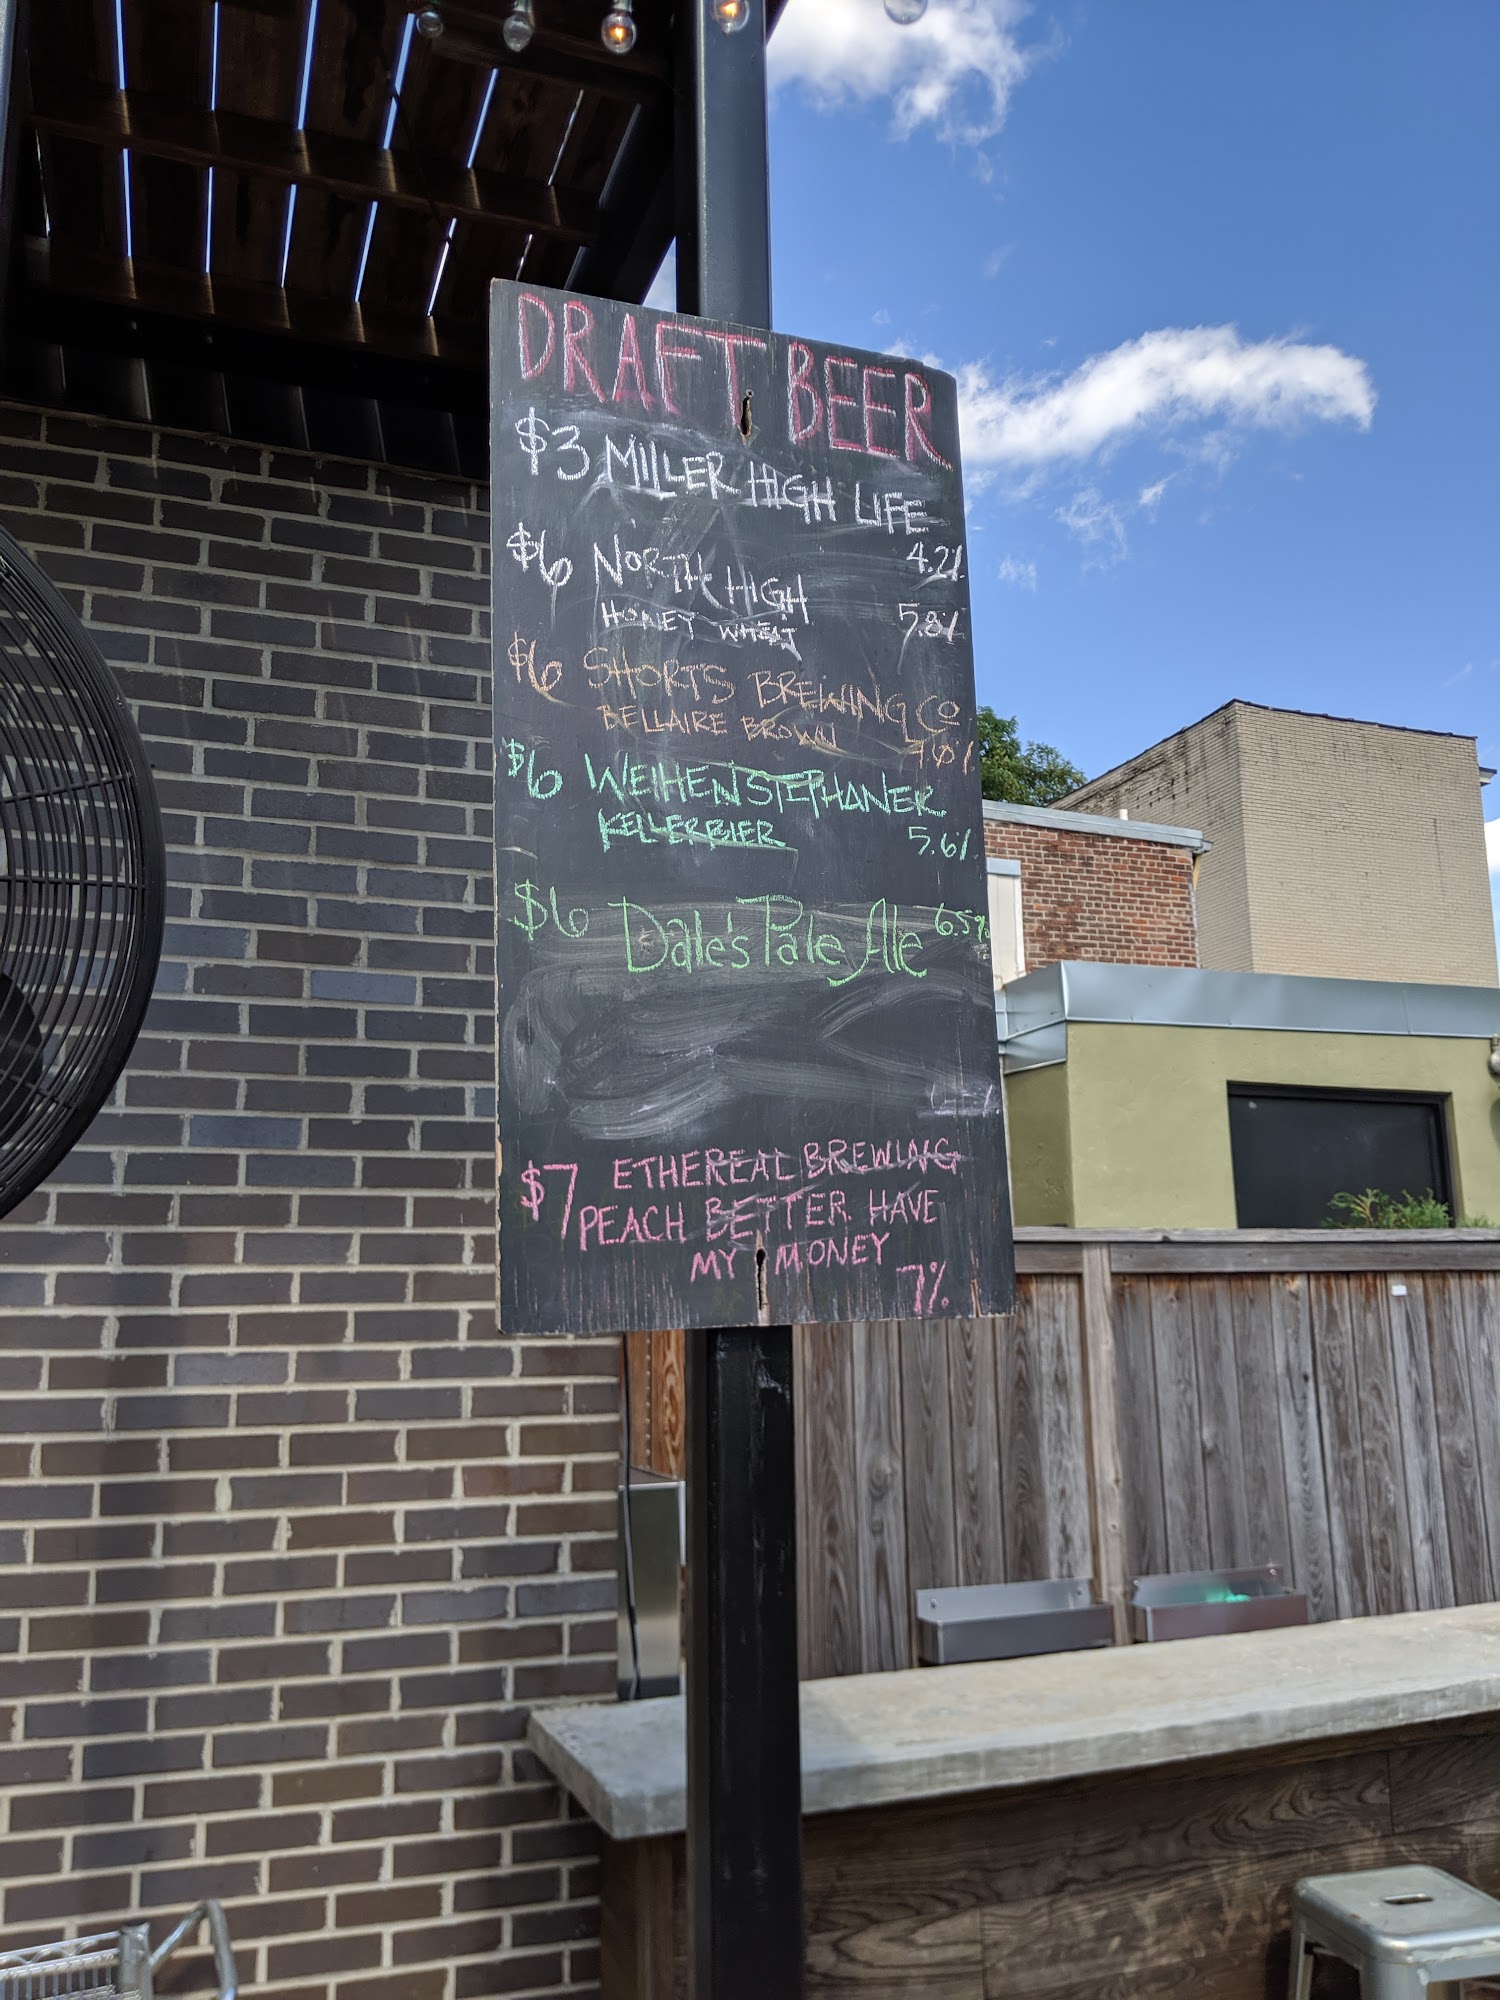 DRAFT BEER
$3 MILLER HIGH LIFE
4.2%
$6 NORTH HIGH
HONEY WHEAT 5.8%
$6 SHORTS BREWING CO
BELLAIRE BROWN 7.0%
$6 WEIHENSTEPHANER
KELLERBIER 5.6%
$6 Dale's Pale Ale 6.5%
$7 ETHEREAL BREWING
PEACH BETTER HAVE
MY MONEY
7%